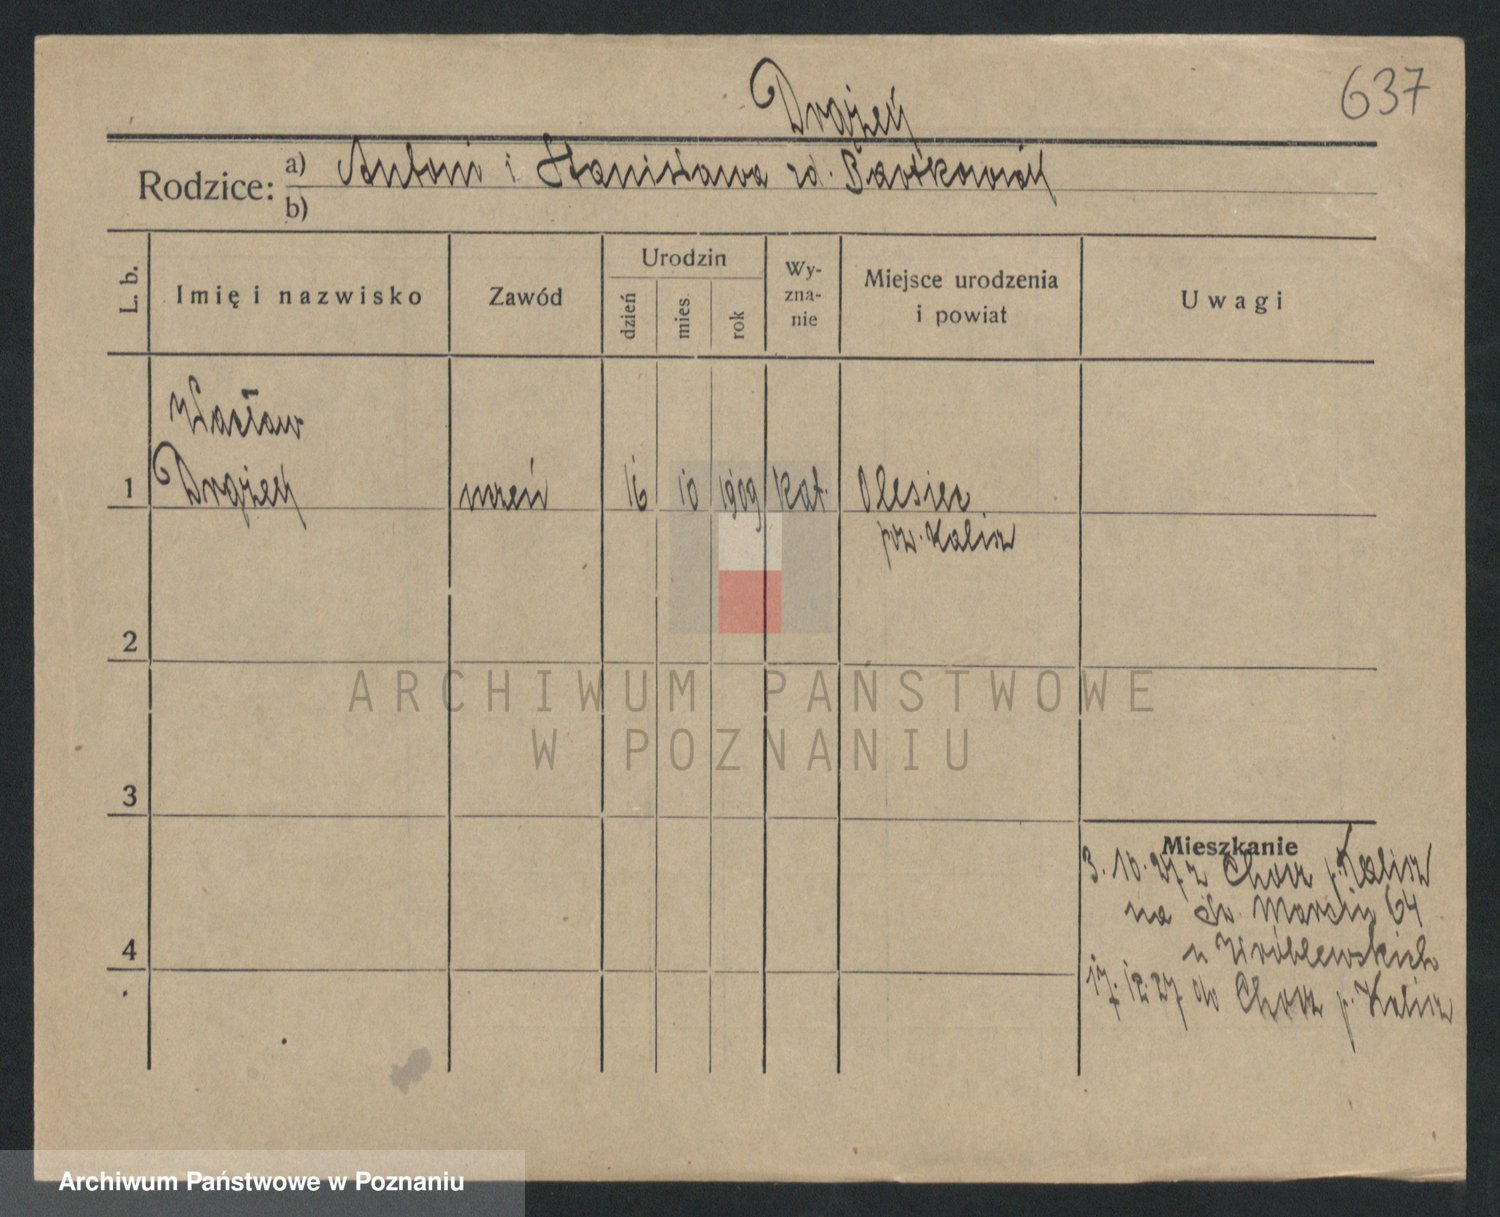 637
Drążeń
Rodzice: a) Antoni i Stanisława zd. Bartkowiak
b)
L. b. Imię i nazwisko Zawód Urodzin dzień mies. rok Wy-zna-nie Miejsce urodzenia i powiat Uwagi
Wacław
1 Drążeń uczeń 16 10 1909 kat. Olesiec
pow. Kalisz
2
ARCHIWUM PAŃSTWOWE
W POZNANIU
3
Mieszkanie
3. 10. 27 z p. Kalisz
na Św. Marcin 64
u Wróblewskich
4
17. 12. 27 do p. Kalisz
Archiwum Państwowe w Poznaniu